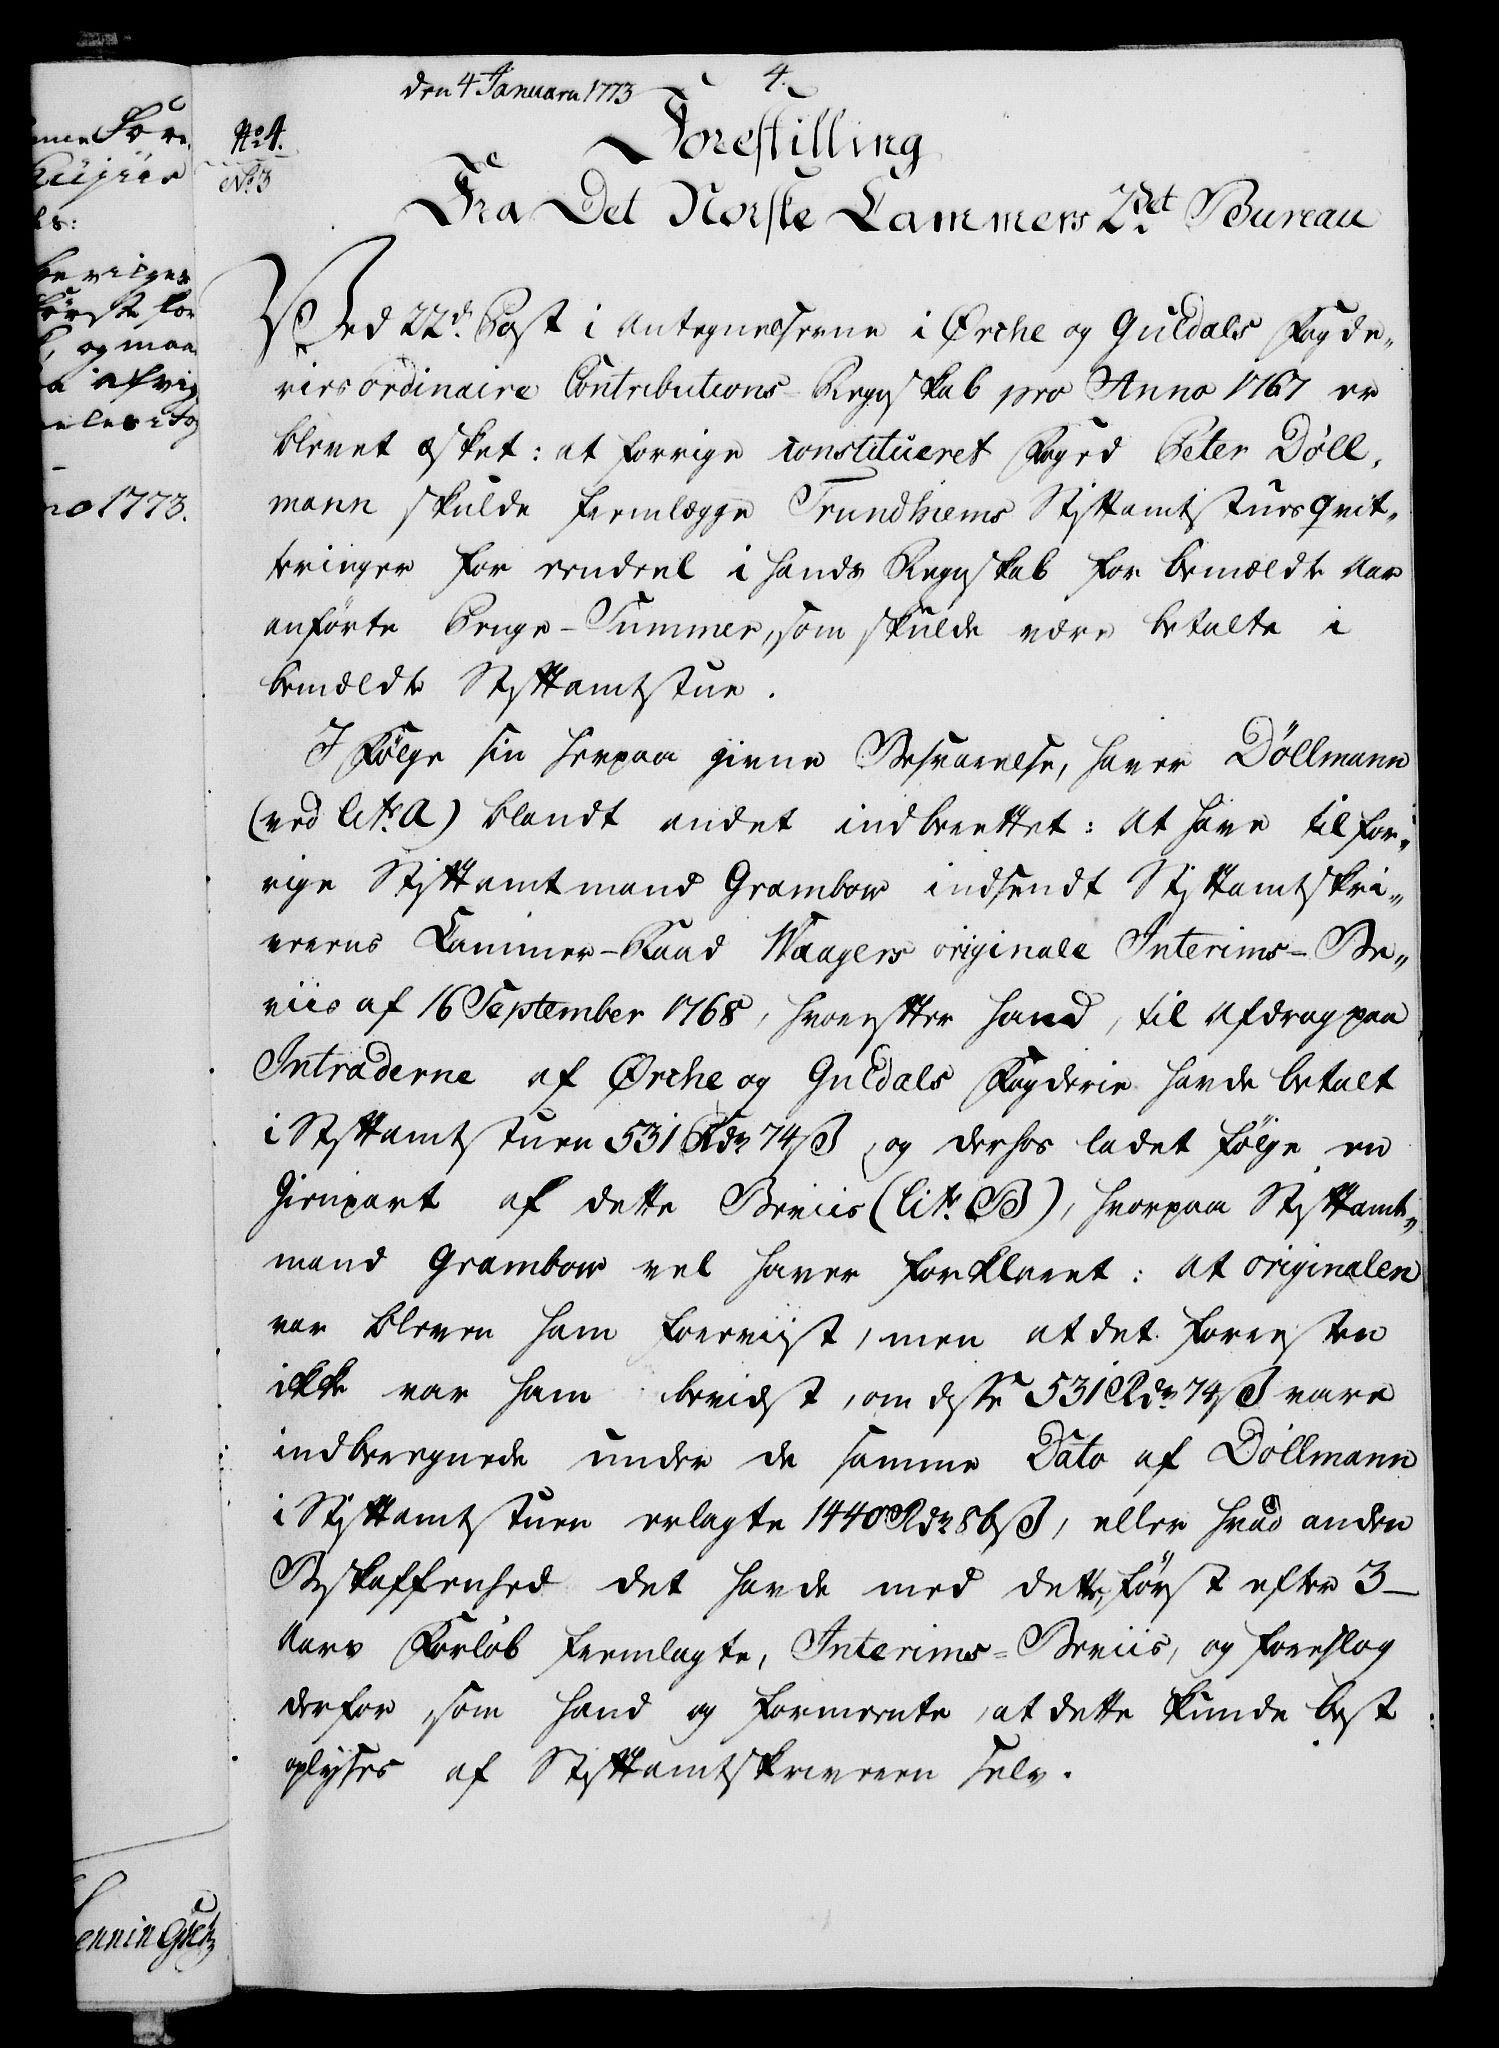 den 4 Januarii 1773
4.
No 4.
No 3
Forestilling
Fra Det Norske Cammers 2det Bureau
Ved 22de Post i Antegnelserne i Ørche og Guldals Fogde„
ries ordinaire Contributions-Regnskab pro Anno 1767 er
blevet æsket: at forrige constitueret Foged Peter Döll„
mann skulde fremlægge Trundhiems Stiftamtstues qvit„
teringer for eendeel i hands Regnskab for bemældte Aar
anförte Penge-Summer, som skulde være betalte i
bemældte Stiftamtstue.
I Fölge sin herpaa givne Besvarelse, haver Döllmann
(ved litr. A) blandt andet indberettet: at have til for„
rige Stiftamtmand Grambow indsendt Stiftamtskri„
verens Cammer-Raad Waagers originale Interims-Be„
viis af 16 September 1768, hvorefter hand, til Afdrag paa
Intraderne af Ørche og Guldals Fogderie havde betalt
i Stiftamtstuen 531 Rdr 74 ß, og derhos ladet fölge en
Gienpart af dette Beviis (litr. B), hvorpaa Stiftamt„
mand Grambow vel haver forklaret: at originalen
var bleven ham foreviist, men at det foresten
ikke var ham bevidst, om disse 531 Rdr 74 ß vare
indberegnede under de samme Dato af Döllmann
i Stiftamtstuen erlagte 1440 Rdr 86 ß, eller hvad anden
Beskaffenhed det havde med dette, först efter 3-
Aars Forlöb fremlagte, Interims-Beviis, og foreslog
derfor, som hand og formeente, at dette kunde best
oplyses af Stiftamtskriveren selv.
og maa
no 1773.